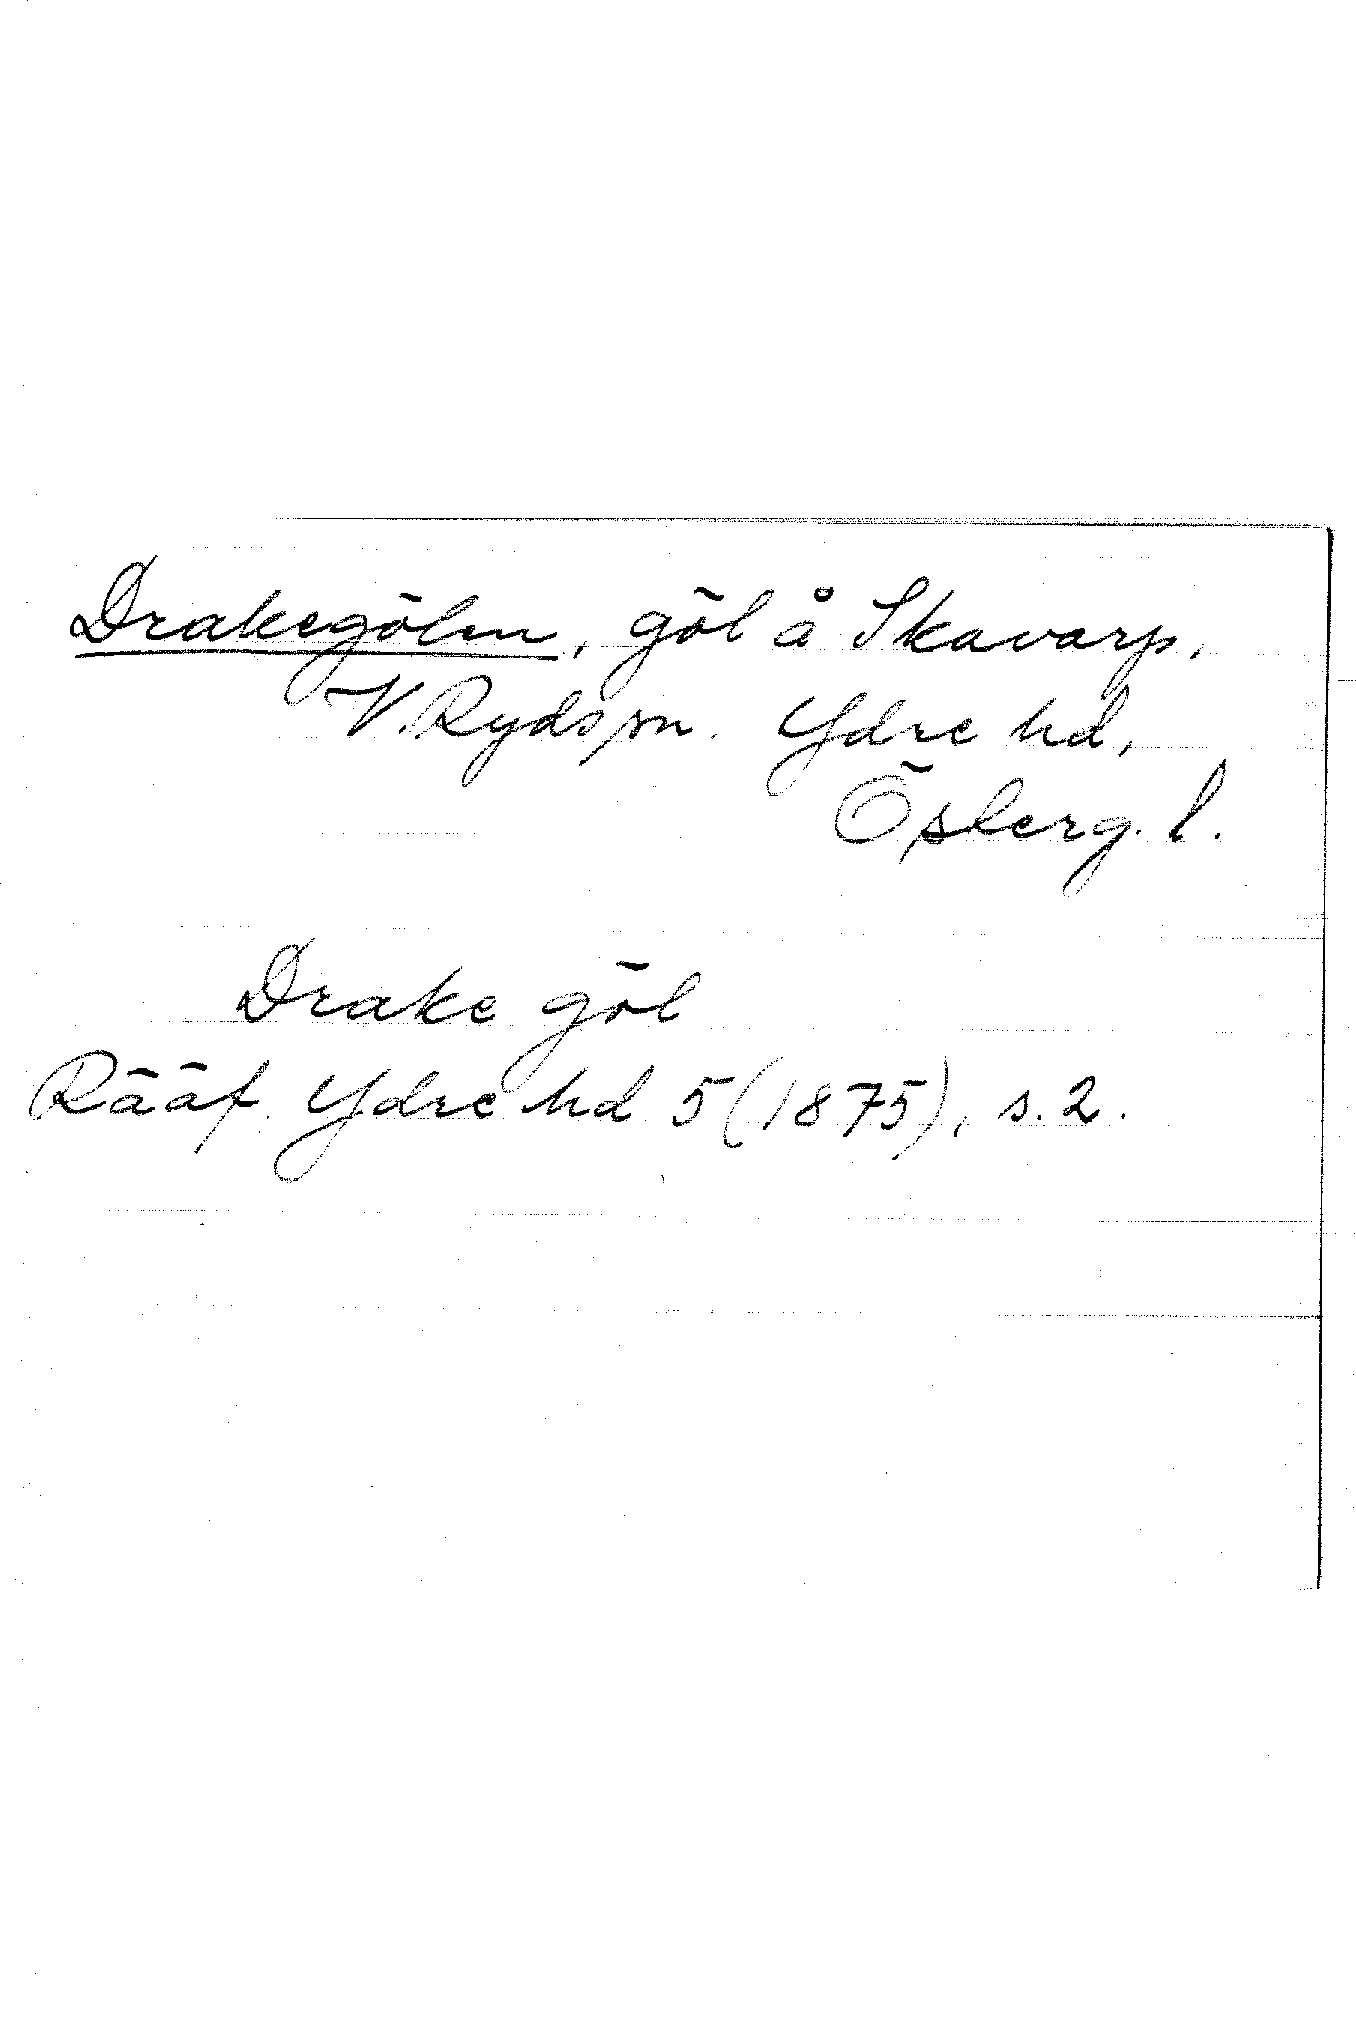 Drakegölen, göl å Skavarp,
V. Ryds sn. Ydre hd,
Österg. l.
Drake göl
Rääf Ydre hd 5 (1875), s. 2.